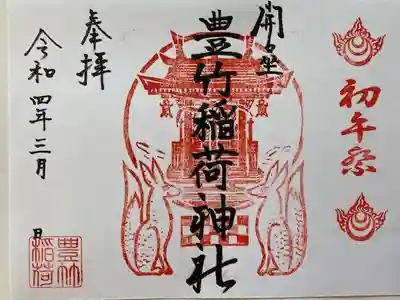 初午祭
開運
豊竹稲荷神社
奉拝
令和四年三月 日
豊竹
稲荷